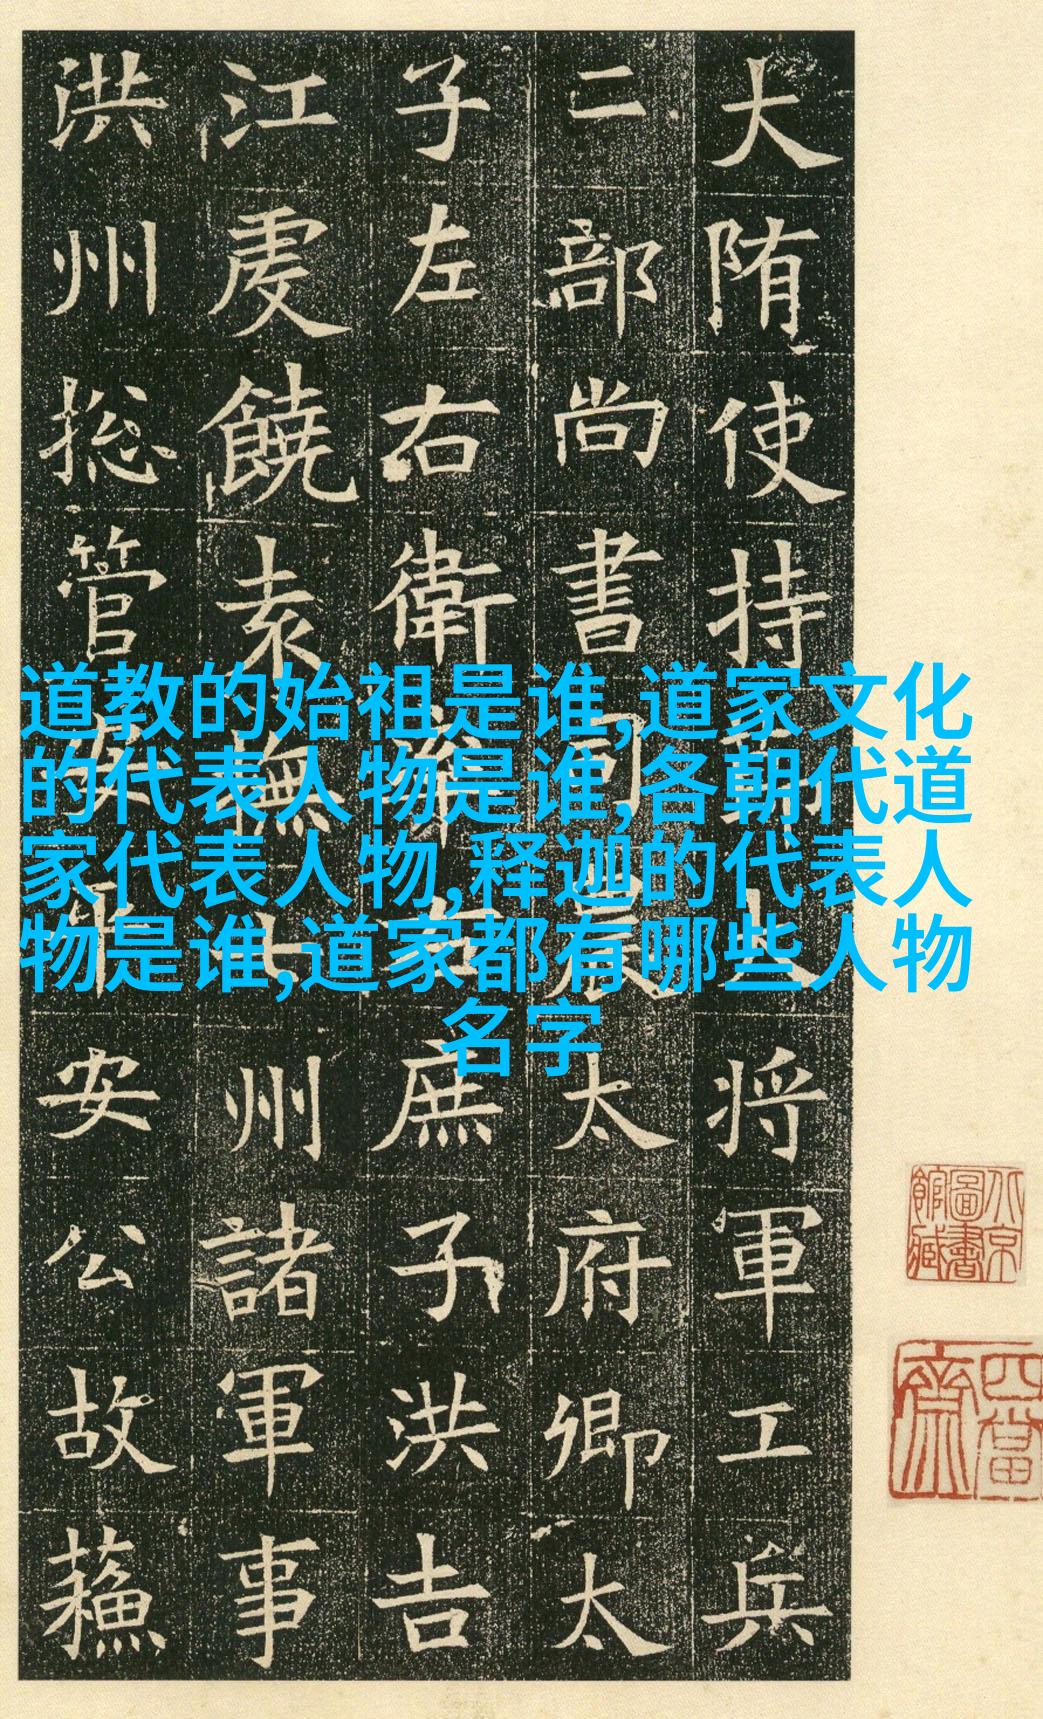 大陏使持將軍工兵
二部尚書司太府卿太
子左右衛庶子洪吉
江虔饒袁撫州諸軍事
洪州捴管安公故蘓
道教的始祖是谁,道家文化
的代表人物是谁,各朝代道
家代表人物,释迦的代表人
物是谁,道家都有哪些人物
名字
北京圖書館藏
四當齋